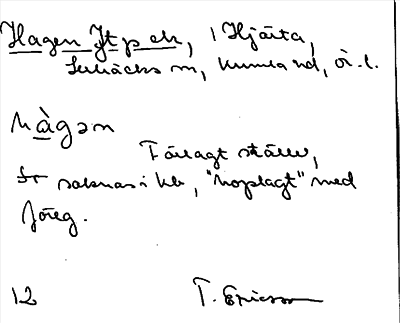 Hagen Jtp ek, 1 Hjärta,
Lekhäcks sn, Kumla hd, ö. l.
hàgən
Färlagt ställe,
saknas i kb, "hoplagt" med
föreg.
12 T. Ericsson